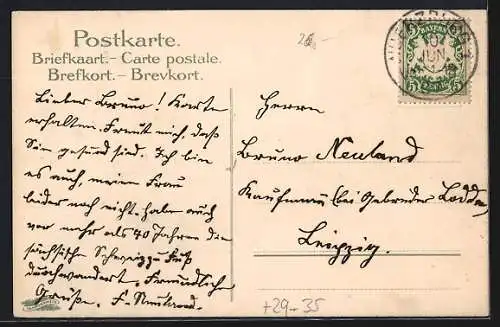 Postkarte.
Briefkaart.- Carte postale.
Brefkort.- Brevkort.
Lieber Bruno! Karte
erhalten. Freut mich, daß
Sie gesund sind. Ich bin
es auch, meine Frau
leider noch nicht. Habe auch
vor mehr als 40 Jahren die
sächsische Schweiz zu Fuß
durchwandert. Freundliche
Grüße. F. Neuland.
BAYERN
5 5
10
JUN.
Herrn
Bruno Neuland
Kaufmann (bei Gebrüder
Leipzig.
+29-35